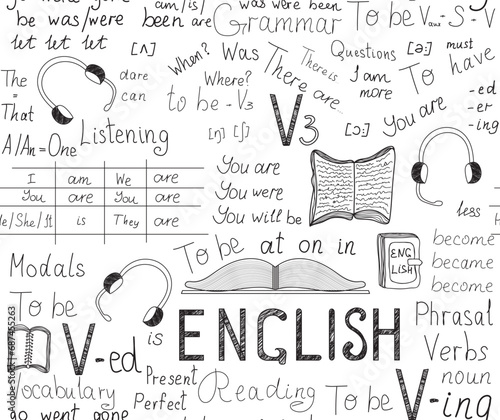 am/is/
was were been
be was/were
been are
Grammar
To be V aux - S - V
let let let
[ʌ]
When?
Was
There is
Questions
[ə:]
must
The
=
That
dare
can
Where?
There are
I am
more
To have
to be - V3
You are
- ed
- er
- ing
A/An = One
Listening
[ŋ] [ʃ]
V3
[ɔ:]
I am We are
You are You are
He/She/It is They are
You are
You were
You will be
less
To be at on in
become
became
become
ENG
LISH
Modals
To be
V-ed
is
ENGLISH
Phrasal
Verbs
noun
Vocabulary
Present
Perfect
Reading
To be
V-ing
go went gone